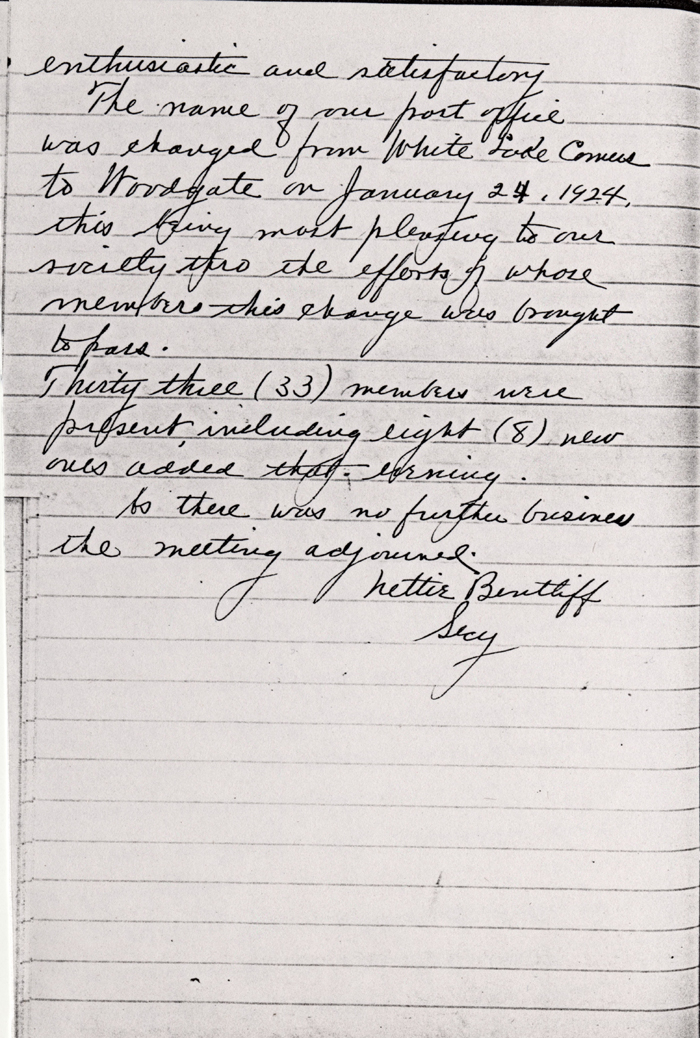 enthusiastic and satisfactory
The name of our post office
was changed from White Lake Corners
to Woodgate on January 24, 1924,
this being most pleasing to our
society thro the efforts of whose
members this change was brought
to pass.
Thirty three (33) members were
present, including eight (8) new
ones added that evening.
As there was no further business
the meeting adjourned.
Nettie Bentliff
Secy